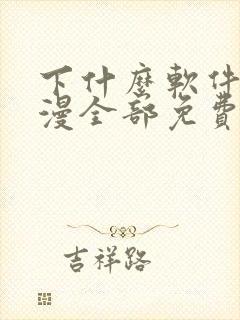 下什麼軟件
漫全部免費
吉祥路